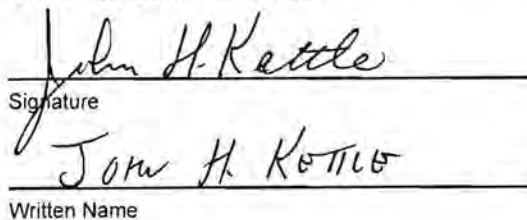 John H. Kettle
Signature
JOHN H. KETTLE
Written Name